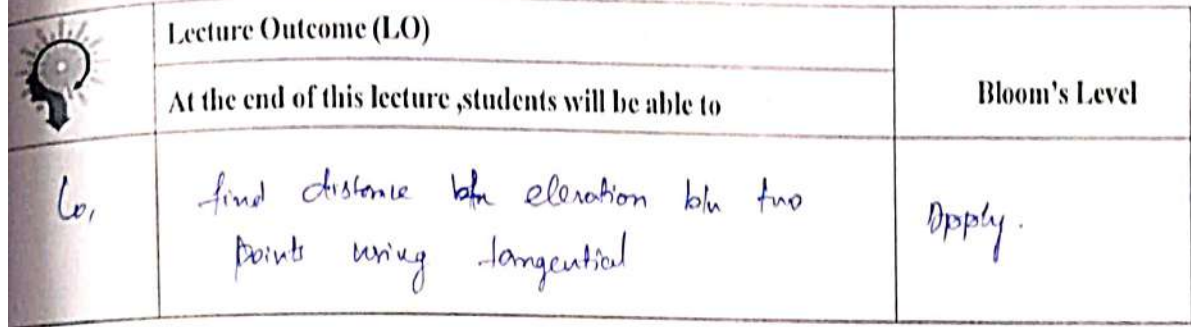 Lecture Outcome (LO)
At the end of this lecture ,students will be able to
Bloom's Level
find distance b/n elevation b/n two
points using tangential
Apply.